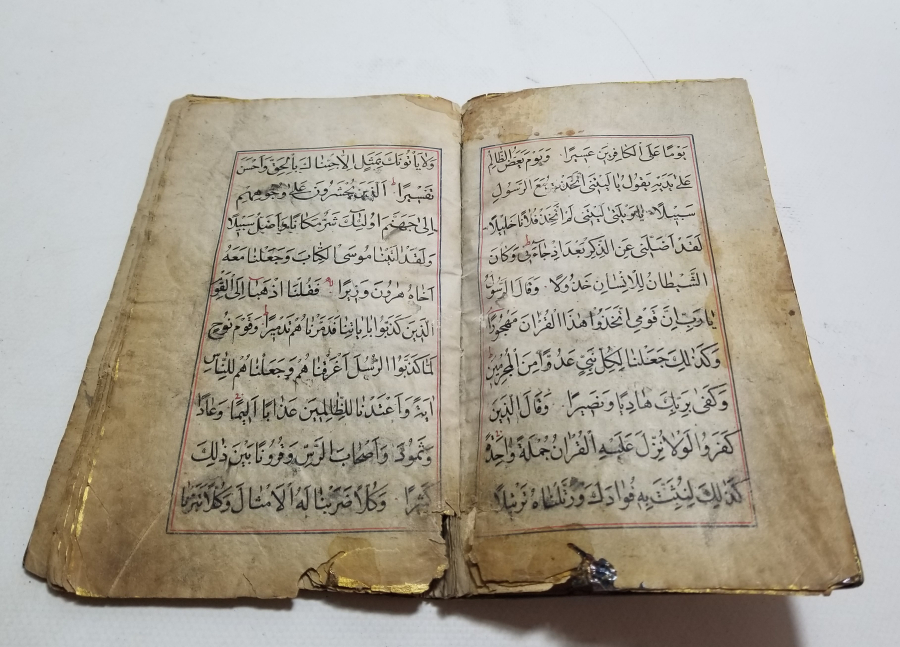 يومًا على الكافرين عسيرًا ويوم يعض الظالم
على يديه يقول يا ليتني اتخذت مع الرسول
سبيلًا يا ويلتى ليتني لم اتخذ فلانًا خليلًا
لقد اضلني عن الذكر بعد اذ جاءني وكان
الشيطان للانسان خذولًا وقال الرسول
يا رب ان قومي اتخذوا هذا القران مهجورًا
وكذلك جعلنا لكل نبي عدوًا من المجرمين
وكفى بربك هاديًا ونصيرًا وقال الذين
كفروا لولا نزل عليه القران جملة واحدة
كذلك لنثبت به فوادك ورتلناه ترتيلًا
ولا ياتونك بمثل الا جئناك بالحق واحسن
تفسيرًا الذين يحشرون على وجوههم
الى جهنم اولئك شر مكانًا واضل سبيلًا
ولقد اتينا موسى الكتاب وجعلنا معه
اخاه هرون وزيرًا فقلنا اذهبا الى القوم
الذين كذبوا باياتنا فدمرناهم تدميرًا وقوم نوح
لما كذبوا الرسل اغرقناهم وجعلناهم للناس
اية واعتدنا للظالمين عذابًا اليمًا وعادًا
وثمود واصحاب الرس وقرونًا بين ذلك
كثيرًا وكلًا ضربنا له الامثال وكلًا تبرنا